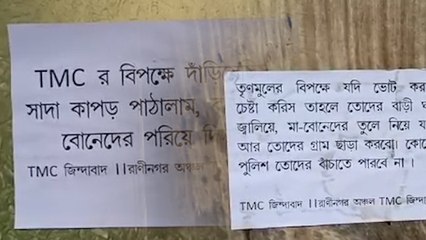 TMC র বিপক্ষে দাঁড়িয়ে
সাদা কাপড় পাঠালাম,
বোনেদের পরিয়ে
TMC জিন্দাবাদ ।।রাণীনগর অঞ্চল
তৃণমুলের বিপক্ষে যদি ভোট
চেষ্টা করিস তাহলে তোদের বাড়ী
জ্বালিয়ে, মা-বোনেদের তুলে নিয়ে
আর তোদের গ্রাম ছাড়া করবো।
পুলিশ তোদের বাঁচাতে পারবে না ।
TMC জিন্দাবাদ ।।রাণীনগর অঞ্চল TMC